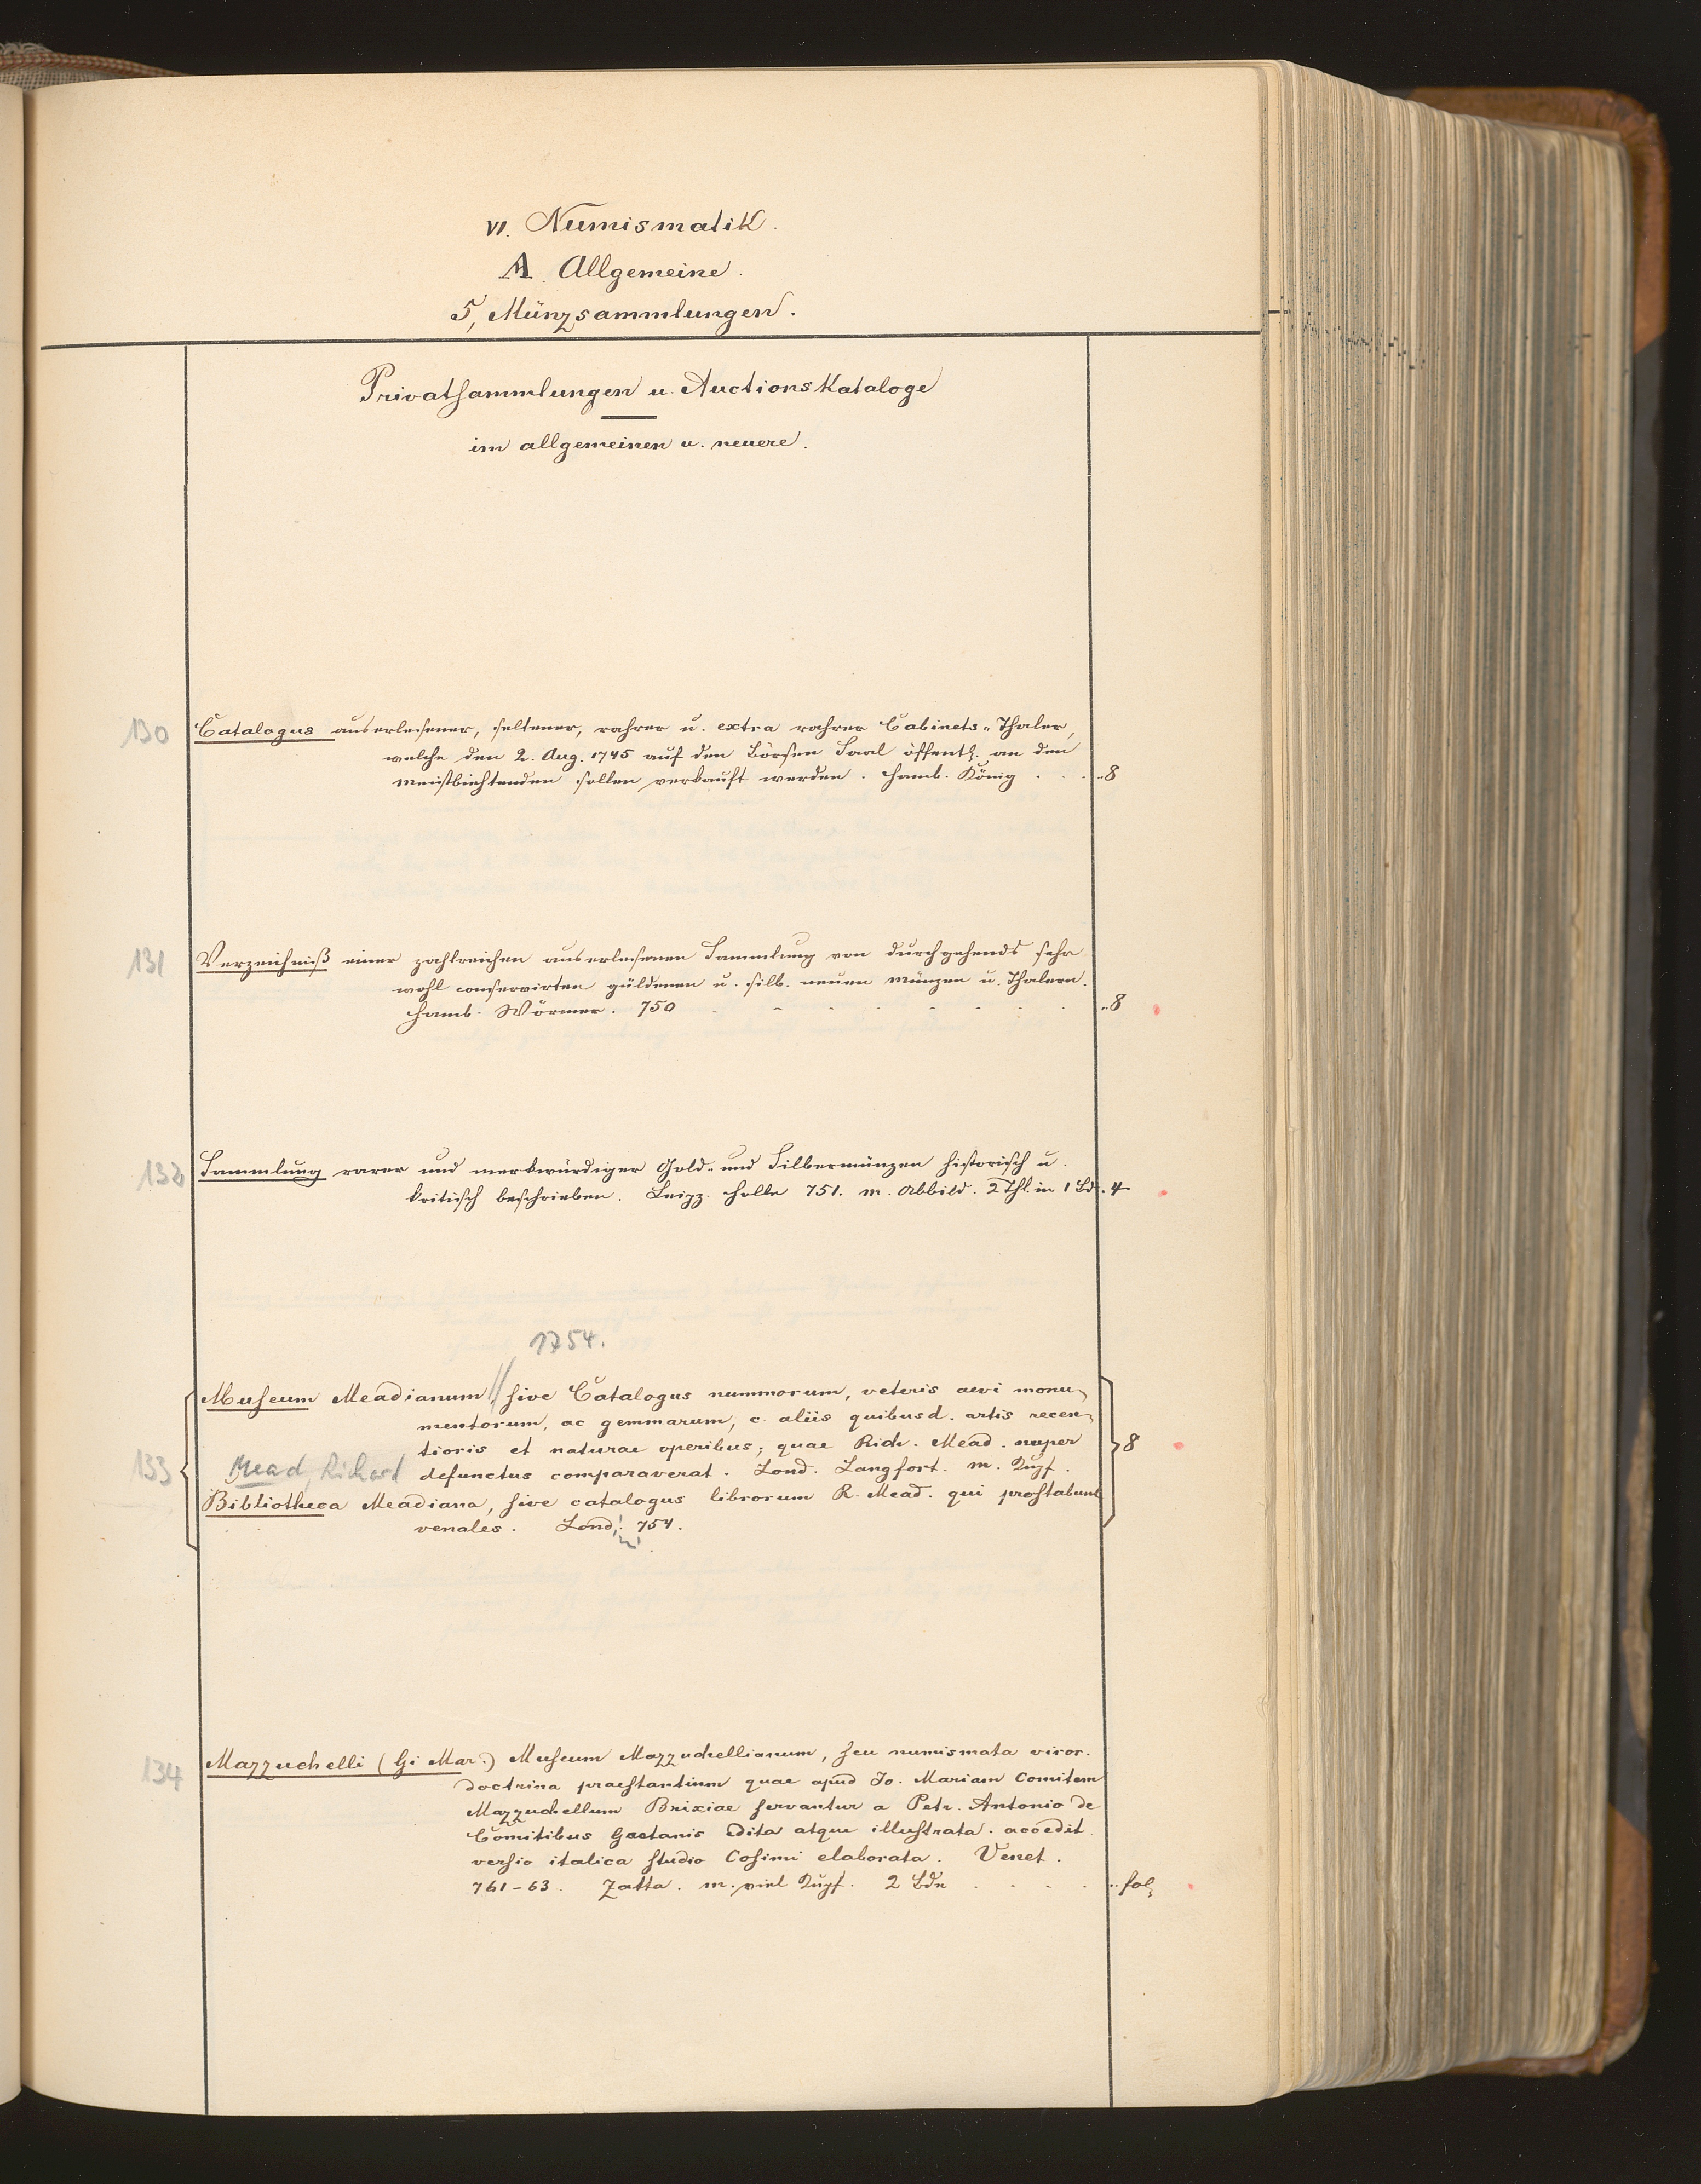 VI. Numismatik.
A. Allgemeine.
5, Münzsammlungen.
Privatsammlungen u. Auctionskataloge
im allgemeinen u. neuere.
130 Catalogus auserlesener, seltener, rahrer u. extra rahrer Cabinets-Thaler,
welche den 2. Aug. 1745 auf den Börsen Saal öffentl. an den
meistbiehtenden sollen verkauft werden. Hamb. König . . . 8
131 Verzeichniß einer zahlreichen auserlesenen Sammlung von durchgehends sehr
wohl conservirten güldenen u. silb. neuen Münzen u. Thalern.
Hamb. Wörmer. 750 . . . . . . . . 8
132 Sammlung rarer und merkwürdiger Gold- und Silbermünzen historisch u.
kritisch beschrieben. Leipz. Holle 751. m. Abbild. 2 Thl. in 1 Bd. 4
1754.
Museum Meadianum, // sive Catalogus nummorum, veteris aevi monu-
mentorum, ac gemmarum, c. aliis quibusd. artis recen-
tioris et naturae operibus; quae Rich. Mead. nuper 8
133 Mead, Richard defunctus comparaverat. Lond. Langfort. m. Kupf.
Bibliotheca Meadiana, sive catalogus librorum R. Mead. qui prostabunt
venales. Lond. 754.
134 Mazzuchelli (Gi Mar.) Museum Mazzuchellianum, seu numismata viror.
doctrina praestantium quae apud Jo. Mariam Comitem
Mazzuchellum Brixiae servantur a Petr. Antonio de
Comitibus Gaetanis edita atque illustrata. accedit
versio italica studio Cosimi elaborata. Venet.
761-63. Zatta. m. viel Kupf. 2 Bde . . . . fol.